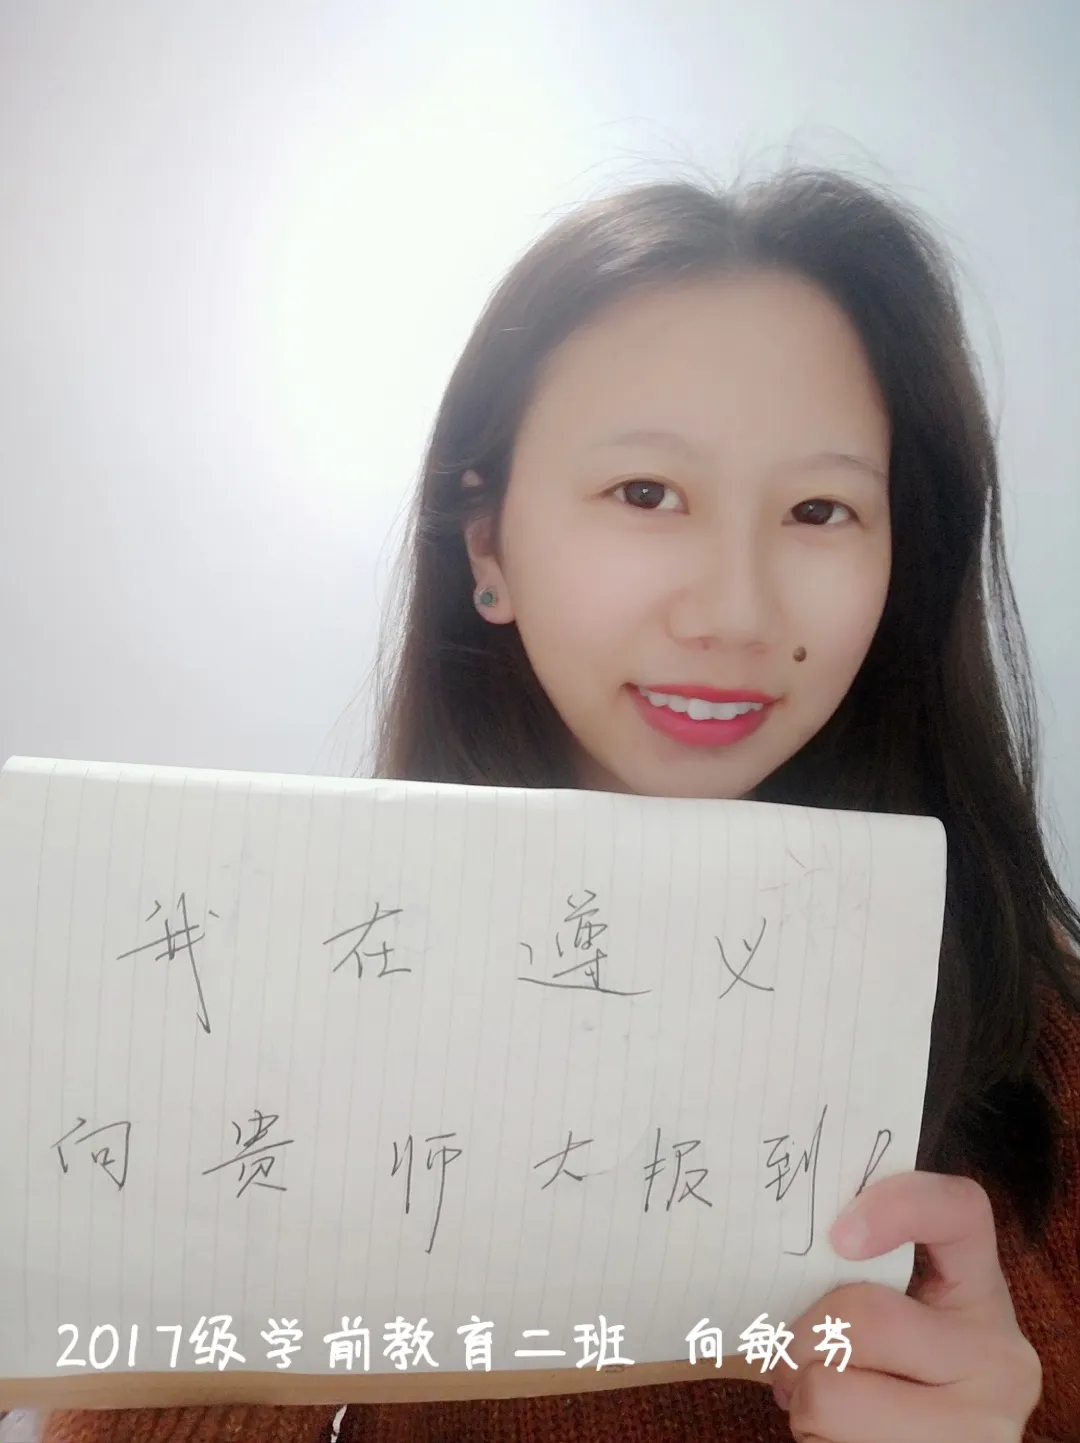 我在遵义
向贵师大报到!
2017级学前教育二班 向敏芬